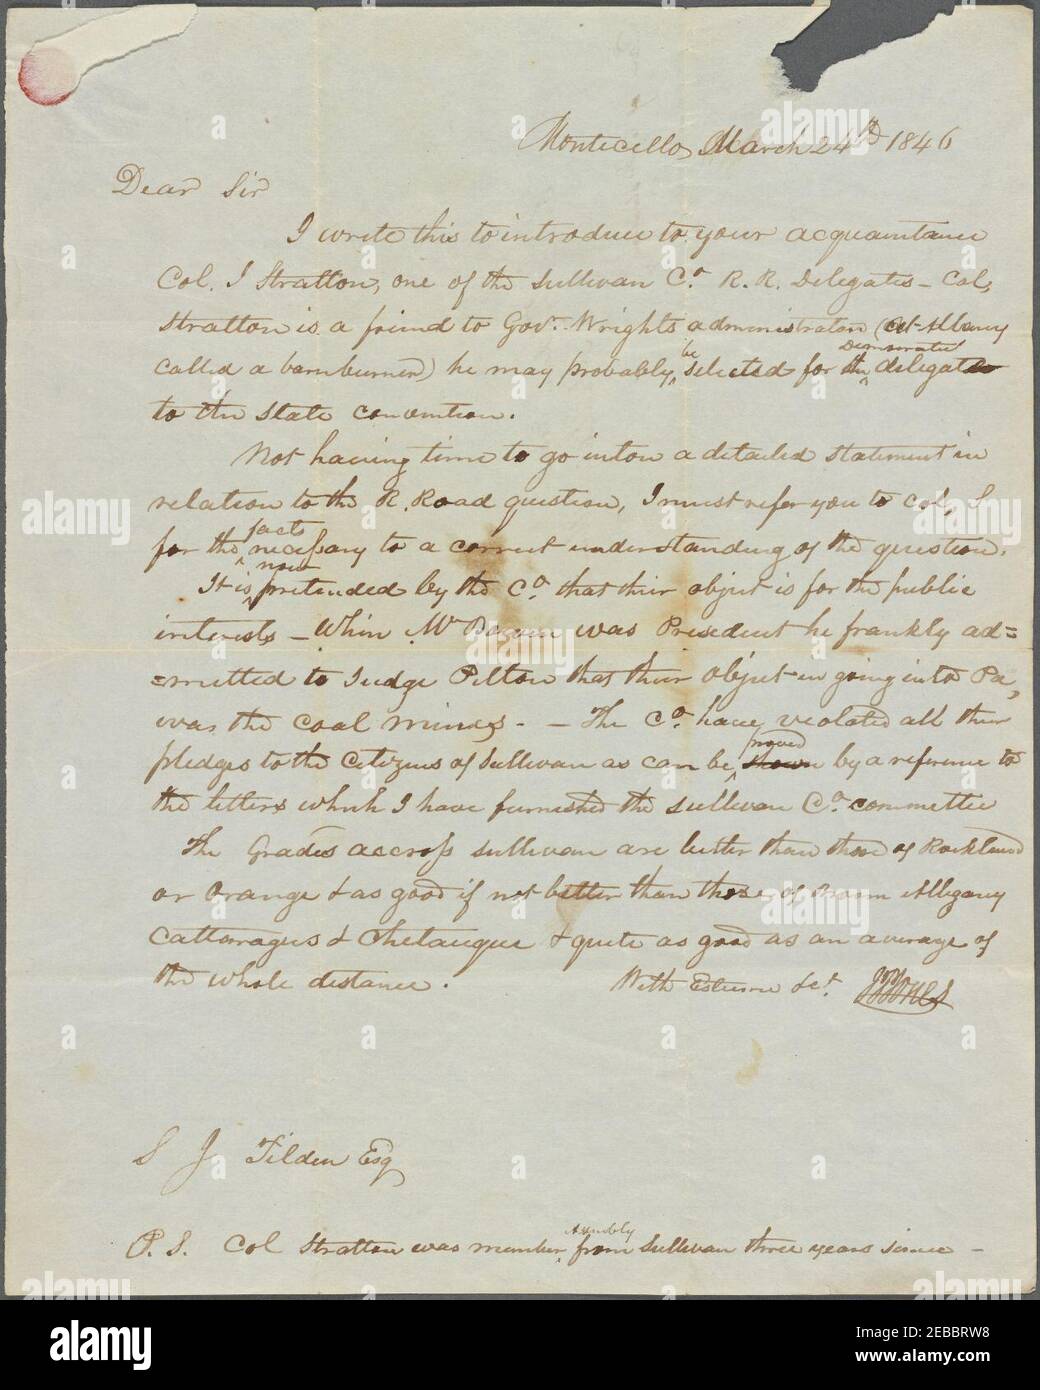 Monticello March 24th 1846
Dear Sir
I write this to introduce to your acquaintance
Col. I Stratton, one of the Sullivan Co. R. R. Delegates - Col,
Stratton is a friend to Gov. Wrights administration (at Albany
called a barnburner) he may probably be selected for the Democratic delegate
to the State convention.
Not having time to go into a detailed statement in
relation to the R. Road question, I must refer you to Col, S
for the facts necessary to a correct understanding of the question.
It is now pretended by the Co. that their object is for the public
interests - When Mr was President he frankly ad=
=mitted to Judge that their object in going into Pa,
was the coal mines. - The Co. have violated all their
pledges to the Citizens of Sullivan as can be shown proved by a reference to
the letters which I have furnished the Sullivan Co. committee
The Grades accross Sullivan are better than those of Rockland
or Orange & as good if not better than those of Allegany
Cattaraugus & & quite as good as an average of
the whole distance. With Esteem &ct. Jones
S J Tilden Esq
P. S. Col Stratton was member Assembly from Sullivan three years since -
alamy
Image ID: 2EBBRW8
www.alamy.com